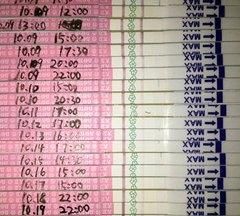 10.09 12:00 MAX
10.09 13:00 MAX
10.09 15:00 MAX
10.09 17:30 MAX
10.09 20:00 MAX
10.09 22:00 MAX
10.10 15:00 MAX
10.10 20:30 MAX
10.11 17:00 MAX
10.12 17:00 MAX
10.13 16:00 MAX
10.14 17:00 MAX
10.15 14:30 MAX
10.16 15:00 MAX
10.17 15:00 MAX
10.18 22:00 MAX
10.19 22:00 MAX